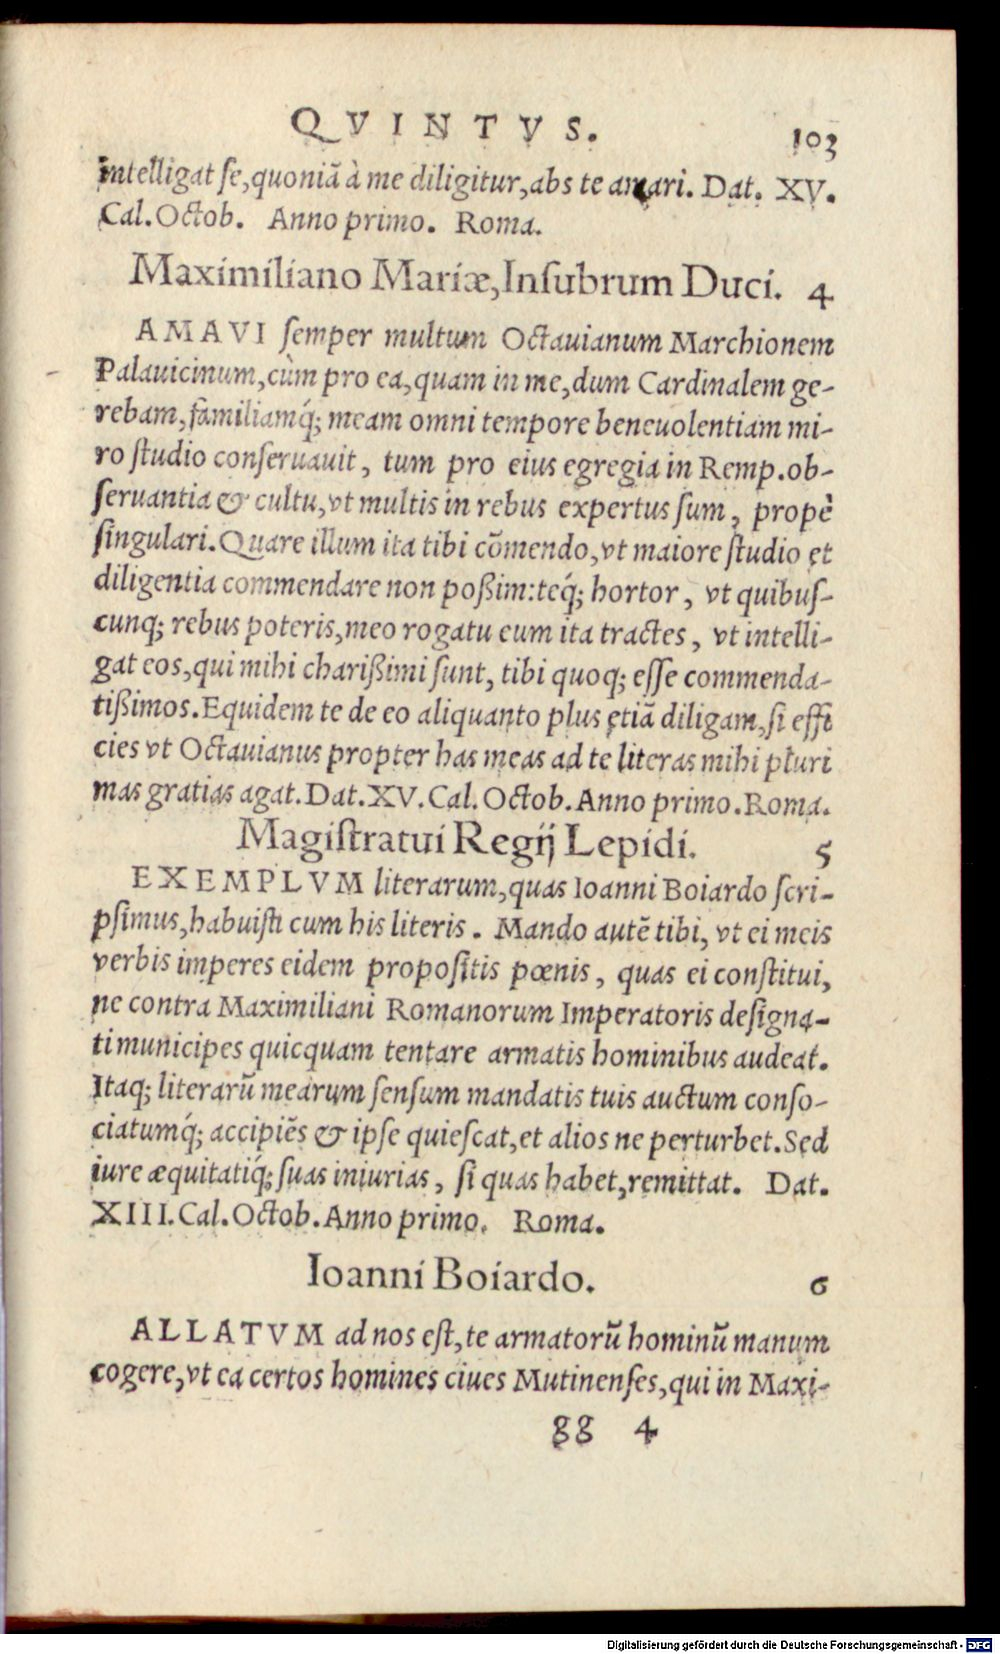 QVINTVS. 103
intelligat se, quoniã à me diligitur, abs te amari. Dat. XV.
Cal. Octob. Anno primo. Roma.
Maximiliano Mariæ, Insubrum Duci. 4
AMAVI semper multum Octauianum Marchionem
Palauicinum, cùm pro ea, quam in me, dum Cardinalem ge-
rebam, familiamq́; meam omni tempore beneuolentiam mi-
ro studio conseruauit, tum pro eius egregia in Remp. ob-
seruantia & cultu, vt multis in rebus expertus sum, propè
singulari. Quare illum ita tibi cõmendo, vt maiore studio et
diligentia commendare non poßim: teq́; hortor, vt quibus-
cunq; rebus poteris, meo rogatu eum ita tractes, vt intelli-
gat eos, qui mihi charißimi sunt, tibi quoq; esse commenda-
tißimos. Equidem te de eo aliquanto plus etiã diligam, si effi
cies vt Octauianus propter has meas ad te literas mihi pluri
mas gratias agat. Dat. XV. Cal. Octob. Anno primo. Roma.
Magistratui Regij Lepidi. 5
EXEMPLVM literarum, quas Ioanni Boiardo scri-
psimus, habuisti cum his literis. Mando autẽ tibi, vt ei meis
verbis imperes eidem propositis pœnis, quas ei constitui,
ne contra Maximiliani Romanorum Imperatoris designa-
ti municipes quicquam tentare armatis hominibus audeat.
Itaq; literarũ mearum sensum mandatis tuis auctum conso-
ciatumq́; accipiẽs & ipse quiescat, et alios ne perturbet. Sed
iure æquitatiq́; suas iniurias, si quas habet, remittat. Dat.
XIII. Cal. Octob. Anno primo. Roma.
Ioanni Boiardo. 6
ALLATVM ad nos est, te armatorũ hominũ manum
cogere, vt ea certos homines ciues Mutinenses, qui in Maxi-
gg 4
Digitalisierung gefördert durch die Deutsche Forschungsgemeinschaft - DFG